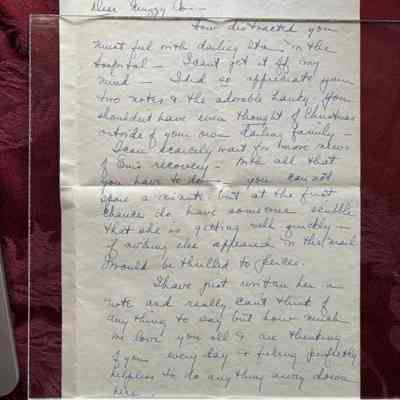 Dear
How distracted you
must feel with darling in the
hospital - I can't get it off my
mind - I did so appreciate your
two notes & the adorable hanky. You
shouldn't have even thought of Christmas
outside of your own darling family -
I can scarcely wait for more news
of recovery - With all that
you have to do - you can not
spare a minute but at the first
chance do have someone scribble
that she is getting well quickly -
if nothing else appeared in the mail
I would be thrilled to pieces.
I have just written her a
note and really can't think of
anything to say but how much
we love you all & are thinking
of you every day & feeling perfectly
helpless to do anything away down
here.